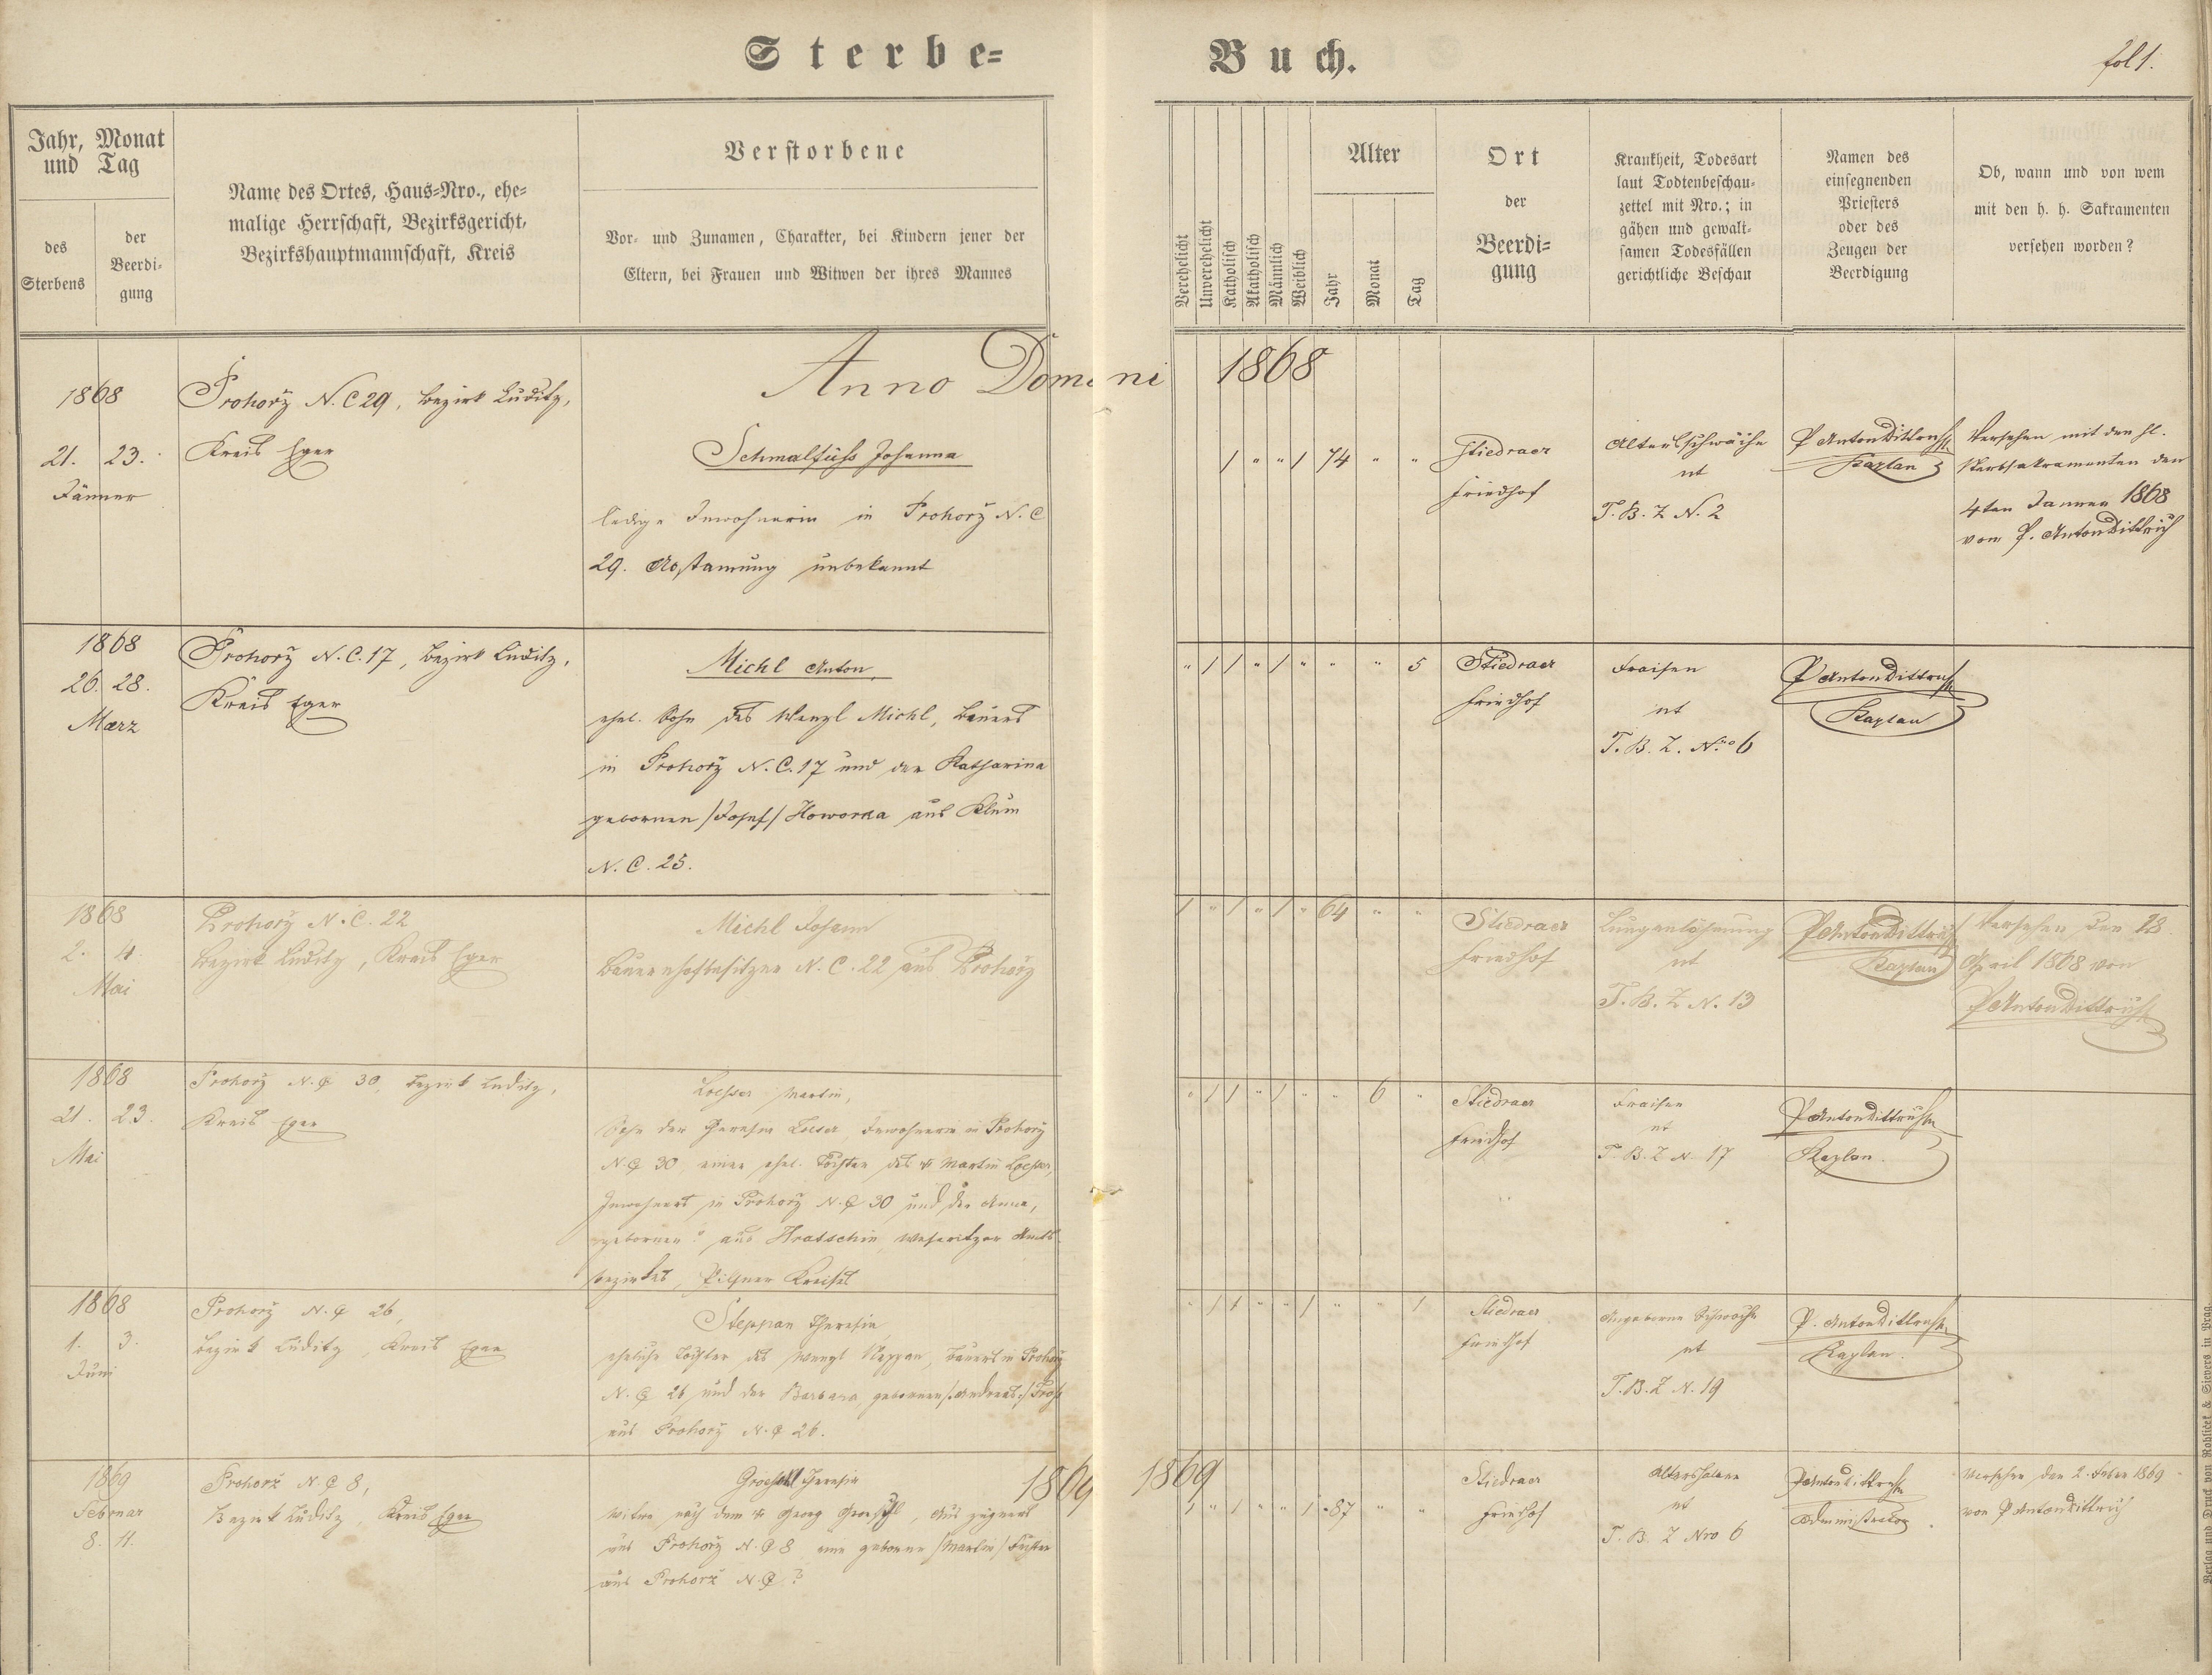 Sterbe-Buch.
fol 1.
Jahr, Monat
und Tag
des
Sterbens
der
Beerdi-
gung
Name des Ortes, Haus-Nro., ehe-
malige Herrschaft, Bezirksgericht,
Bezirkshauptmannschaft, Kreis
Verstorbene
Vor- und Zunamen, Charakter, bei Kindern jener der
Eltern, bei Frauen und Witwen der ihres Mannes
Verehelicht
Unverehelicht
Katholisch
Akatholisch
Männlich
Weiblich
Alter
Jahr
Monat
Tag
Ort
der
Beerdi-
gung
Krankheit, Todesart
laut Todtenbeschau-
zettel mit Nro.; in
gähen und gewalt-
samen Todesfällen
gerichtliche Beschau
Namen des
einsegnenden
Priesters
oder des
Zeugen der
Beerdigung
Ob, wann und von wem
mit den h. h. Sakramenten
versehen worden?
Anno Domini 1868
1868
21. 23.
Jänner
Prohorz N. C 29, Bezirk Luditz,
Kreis Eger
Schmalfuss Johanna
ledige Inwohnerin in Prohorz N. C
29. Abstamung unbekannt
1 " " 1 74 " "
Stiedraer
Friedhof
Altersschwäche
ut
T. B. Z N. 2
P Anton Dittrich
Kaplan
Versehen mit den hl.
Sterbsakramenten den
4ten Janner 1868
vom P. Anton Dittrich
1868
26. 28.
Maerz
Prohorz N. C. 17, Bezirk Luditz,
Kreis Eger
Michl Anton,
ehel. Sohn des Wenzl Michl, Bauers
in Prohorz N. C. 17 und der Katharina
gebornen /Josef/ Howorka aus Klum
N. C. 25.
" 1 1 " 1 " " " 5
Stiedraer
Friedhof
Fraisen
ut
T. B. Z. Nro 6
P Anton Dittrich
Kaplan
1868
2. 4.
Mai
Prohorz N. C. 22
Bezirk Luditz, Kreis Eger
Michl Johann
Bauernhofbesitzer N. C. 22 aus Prohorz
1 " 1 " 1 " 64 " "
Stiedraer
Friedhof
Lungenlähmung
ut
T. B. Z N. 13
P Anton Dittrich
Kaplan
Versehen den 28.
April 1868 von
P Anton Dittrich
1868
21. 23.
Mai
Prohorz N. C 30, Bezirk Luditz,
Kreis Eger
Loesser Martin,
Sohn der Theresia Loeser, Inwohnerin in Prohorz
N. C 30, einer ehel. Tochter des Martin Loesser,
Inwohners in Prohorz N. C 30 und der Anna,
gebornen ? aus Hratschin, Weseritzer Amts-
bezirkes, Pilsner Kreises
" 1 1 " 1 " " 6 "
Stiedraer
Friedhof
Fraisen
ut
T. B. Z N. 17
P Anton Dittrich
Kaplan.
1868
1. 3.
Juni
Prohorz N. C 26,
Bezirk Luditz, Kreis Eger
Steppan Theresia,
eheliche Tochter des Wenzl Steppan, Bauers in Prohorz
N. C 26 und der Barbara, gebornen /:Andreas:/
aus Prohorz N. C 26.
" 1 1 " " 1 " " 1
Stiedraer
Friedhof
Angeborne Schwäche
ut
T. B. Z N. 19
P. Anton Dittrich
Kaplan.
1869 1869
1869
Februar
8. 11.
Prohorz N. C 8,
Bezirk Luditz, Kreis Eger
Groeschl Theresia
Witwe nach dem Georg Groeschl, Auszüglers
aus Prohorz N. C 8 eine geborne /Martin/
aus Prohorz N. C ?
1 " 1 " " 1 87 " "
Stiedraer
Friedhof
Altershalber
ut
T. B. Z Nro 6
P Anton Dittrich
Administrator
Versehen den 2. Feber 1869
von P Anton Dittrich
Verlag und Druck von Rohliček & Sievers in Prag.